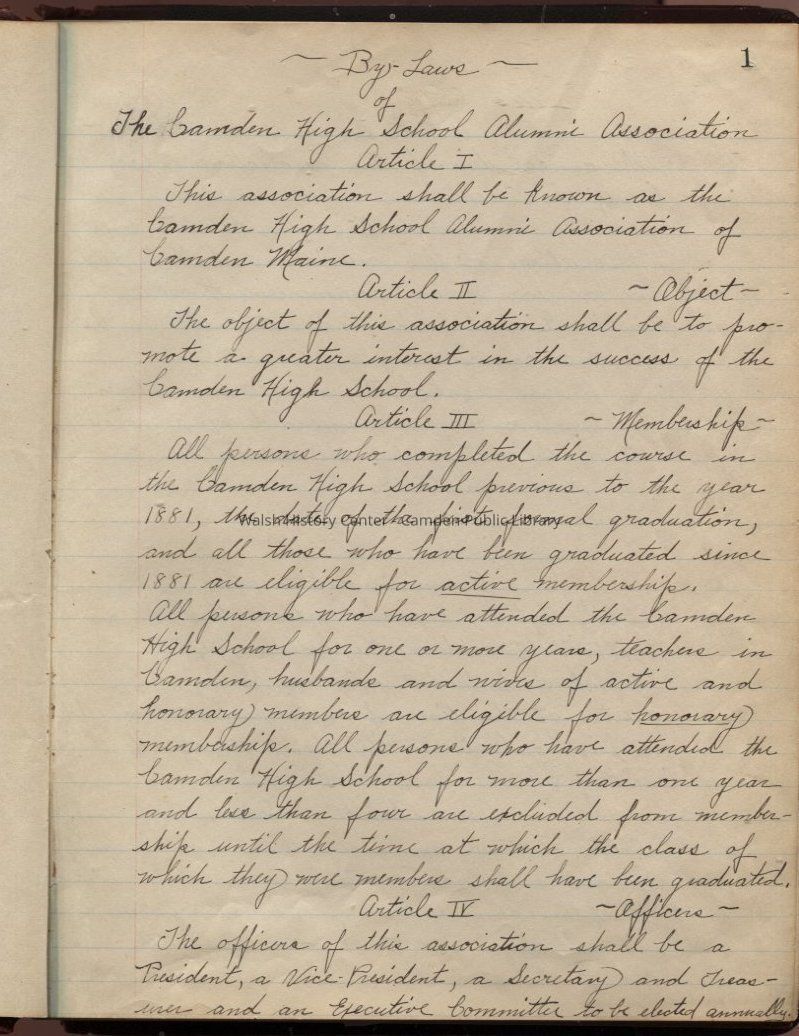 1
~ By-Laws ~
of
The Camden High School Alumni Association
Article I
This association shall be known as the
Camden High School Alumni Association of
Camden Maine.
Article II ~ Object ~
The object of this association shall be to pro-
mote a greater interest in the success of the
Camden High School.
Article III ~ Membership ~
All persons who completed the course in
the Camden High School previous to the year
1881, the date of the first formal graduation,
Walsh History Center - Camden Public Library
and all those who have been graduated since
1881 are eligible for active membership.
All persons who have attended the Camden
High School for one or more years, teachers in
Camden, husbands and wives of active and
honorary members are eligible for honorary
membership. All persons who have attended the
Camden High School for more than one year
and less than four are excluded from member-
ship until the time at which the class of
which they were members shall have been graduated.
Article IV ~ Officers ~
The officers of this association shall be a
President, a Vice-President, a Secretary and Treas-
urer and an Executive Committee to be elected annually.